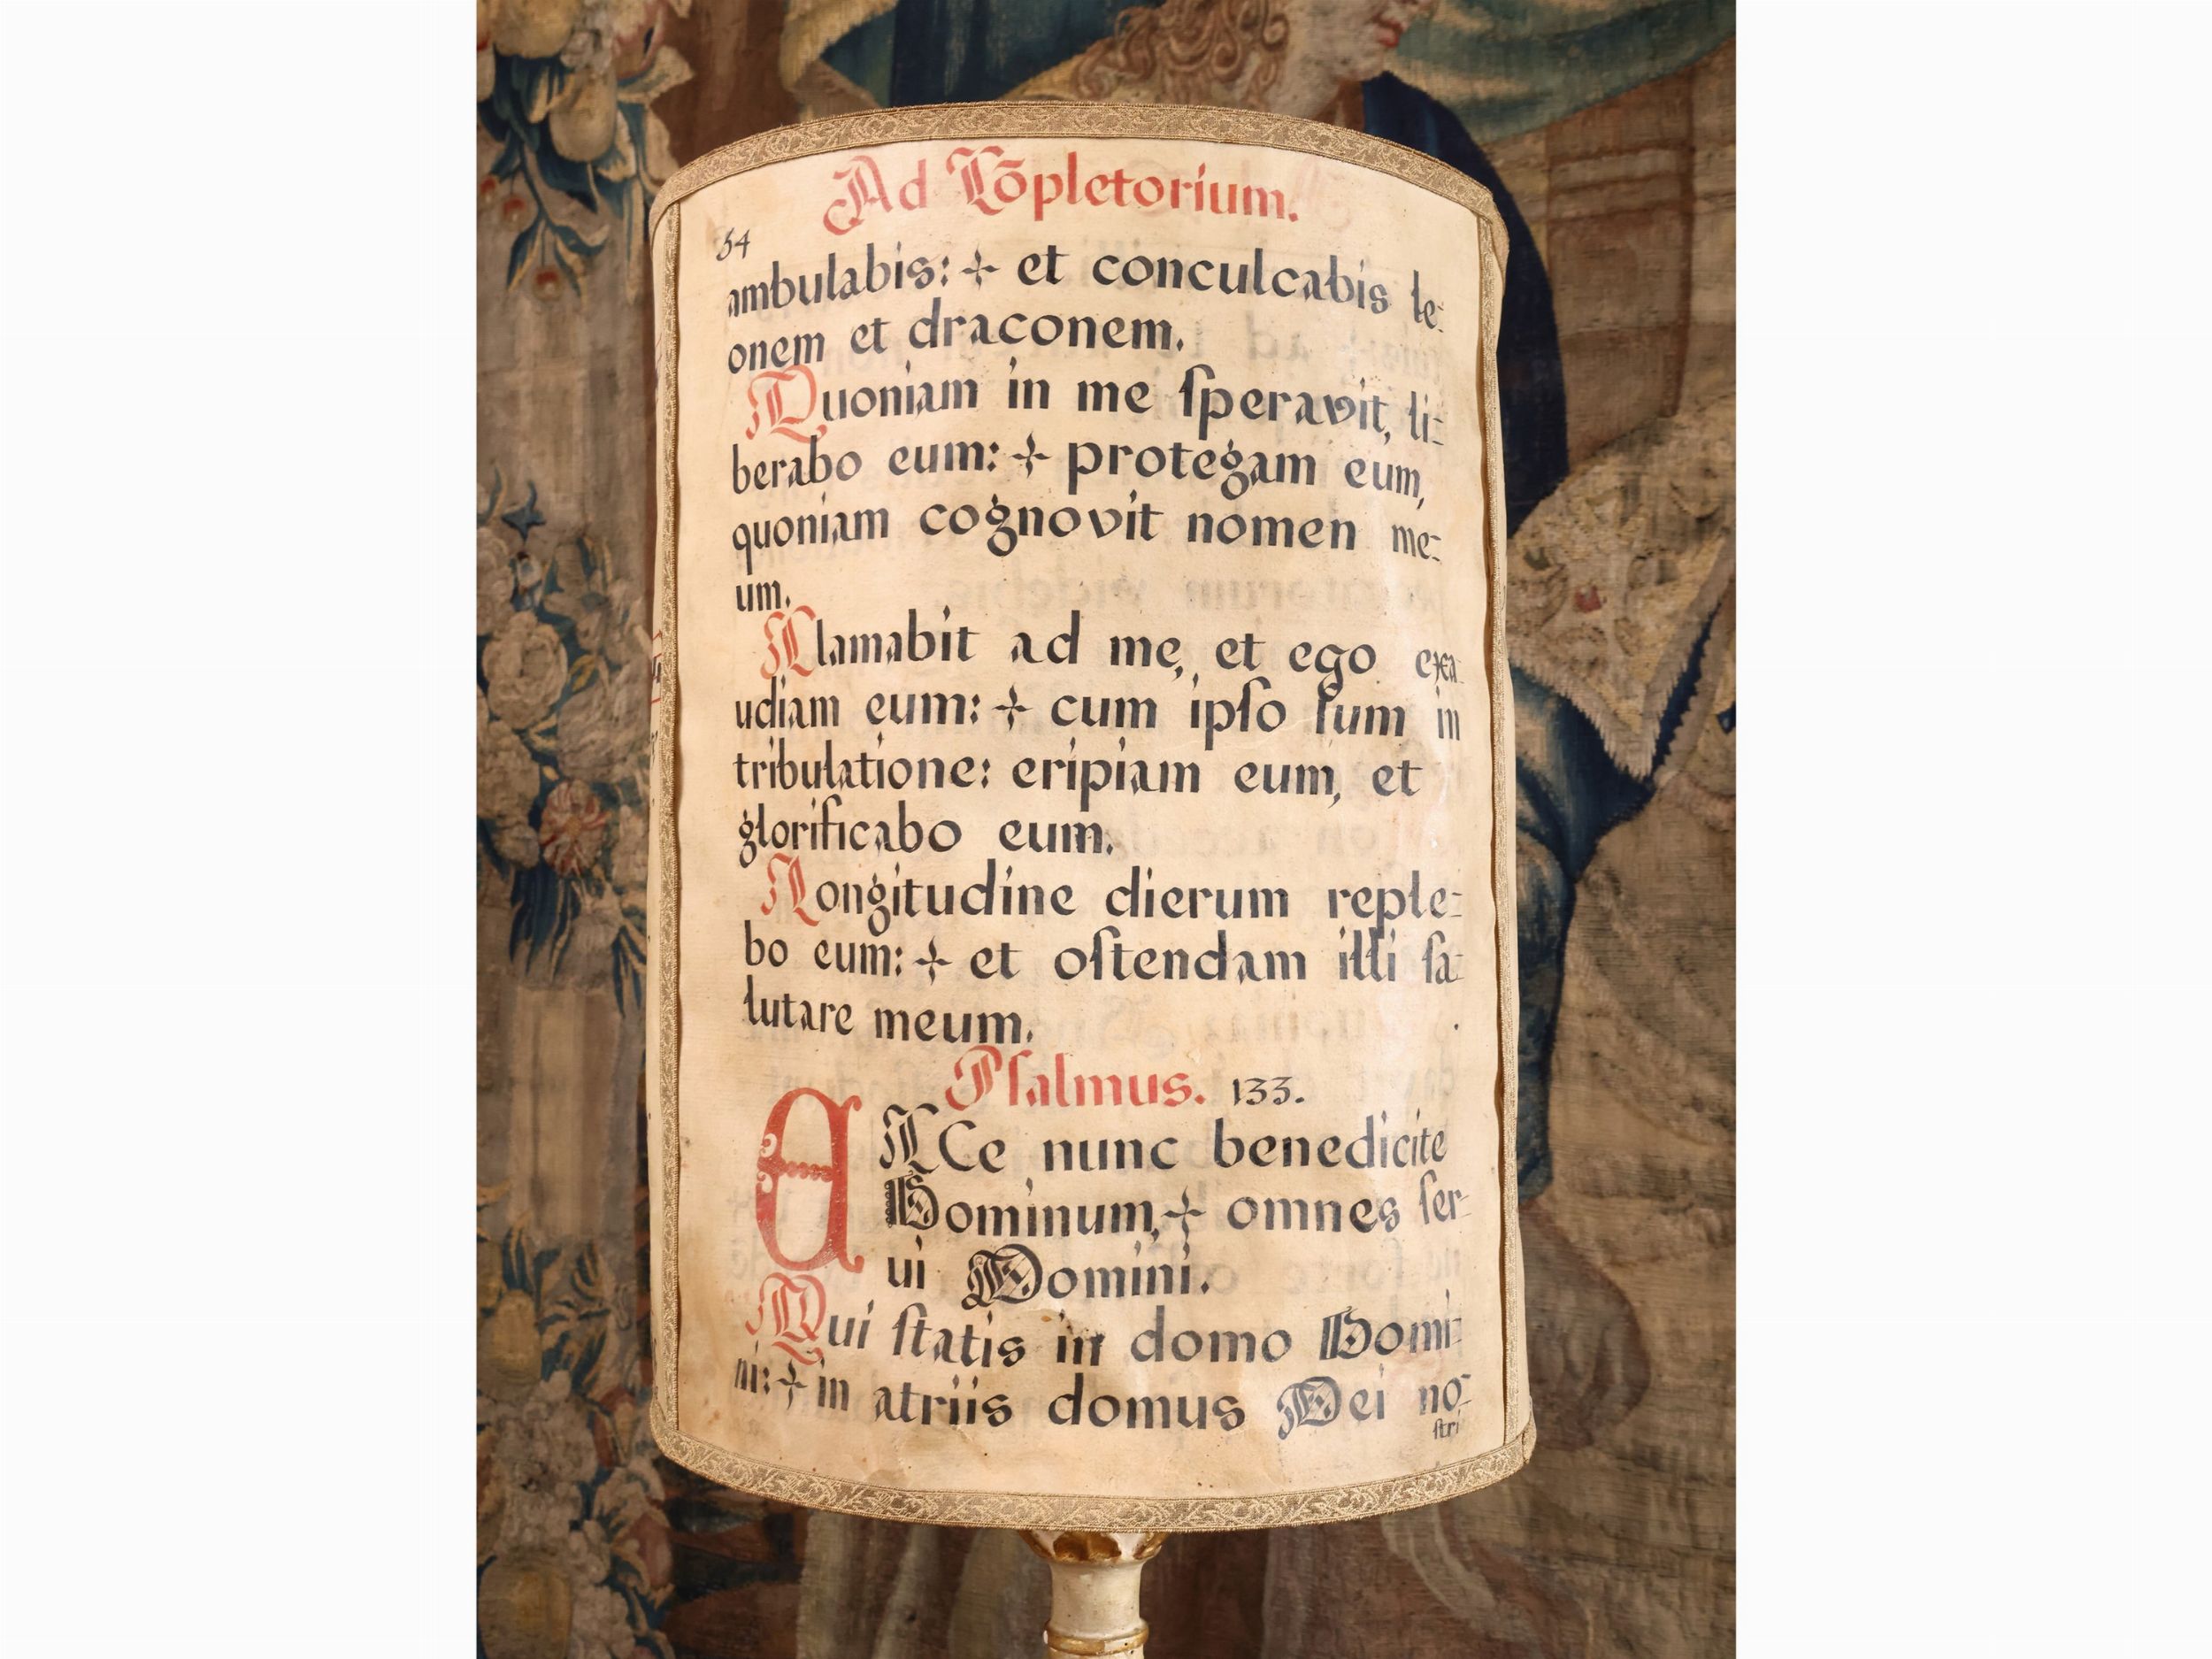 Ad Cōpletorium.
54
ambulabis: + et conculcabis le-
onem et draconem.
Quoniam in me ſperavit, li-
berabo eum: + protegam eum,
quoniam cognovit nomen me-
um.
Clamabit ad me, et ego exa-
udiam eum: + cum ipſo ſum in
tribulatione: eripiam eum, et
glorificabo eum.
Longitudine dierum reple-
bo eum: + et oſtendam illi ſa-
lutare meum.
Pſalmus. 133.
ECCe nunc benedicite
Dominum, + omnes ſer-
ui Domini.
Qui ſtatis in domo Domi-
ni: + in atriis domus Dei no-
ſtri